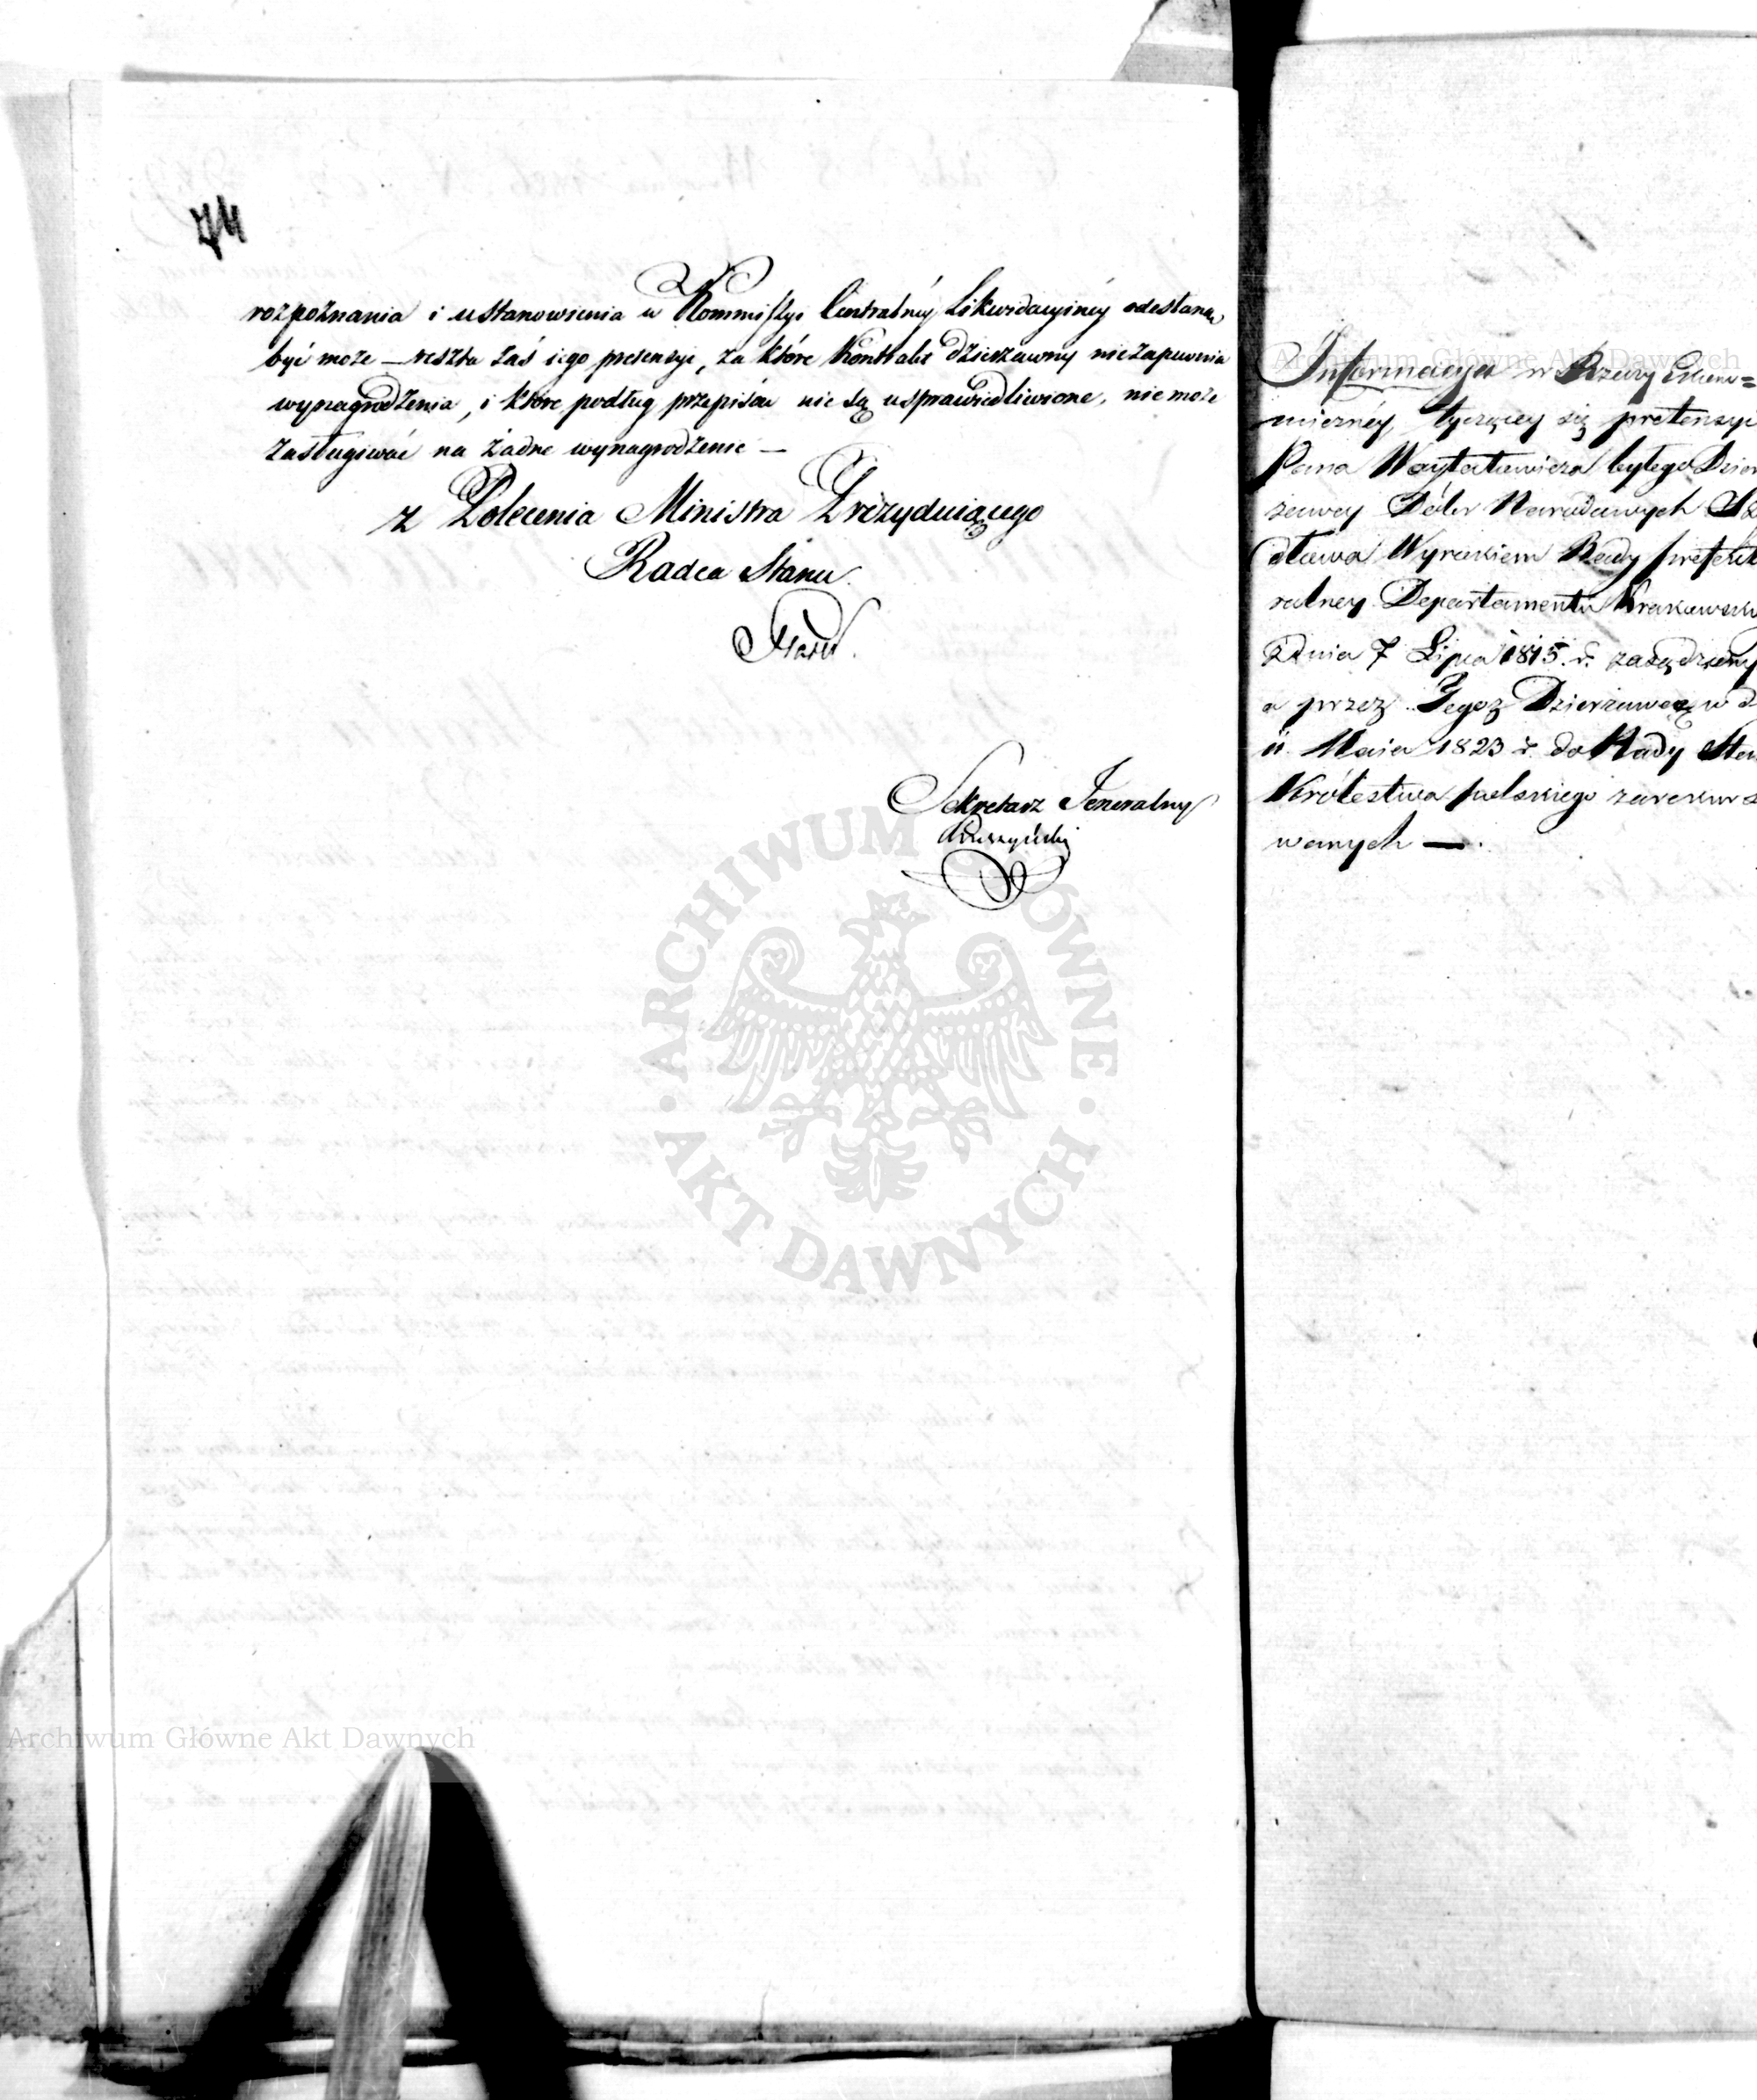 74
rozpoznania i ustanowienia w Kommissyi Centralnéy Likwidacyinéy odesłane
być może — reszta zaś iego pretensyi, za które Kontrakt dzierzawny niezapewnia
wynagrodzenia, i które podług przepisów nie są usprawiedliwione, nie może
zasługiwać na żadne wynagrodzenie —
z Polecenia Ministra Prezyduiącego
Radca Stanu.
Sekretarz Jeneralny
Informacya w Rzeczy
miernéy tyczącey się pretensyi
Pana byłego Dzier
żawcy Dóbr Narodowych
Wyrokiem Rady prefektu
ralney Departamentu Krakowsk
z dnia 7 Lipca 1815. r. zasądzony
a przez Tegoż Dzierżawcę w d
11. Maia 1823 r. do Rady Stan
Królestwa polskiego zarekur
wanych —.
ARCHIWUM GŁÓWNE AKT DAWNYCH
Archiwum Główne Akt Dawnych
Archiwum Główne Akt Dawnych